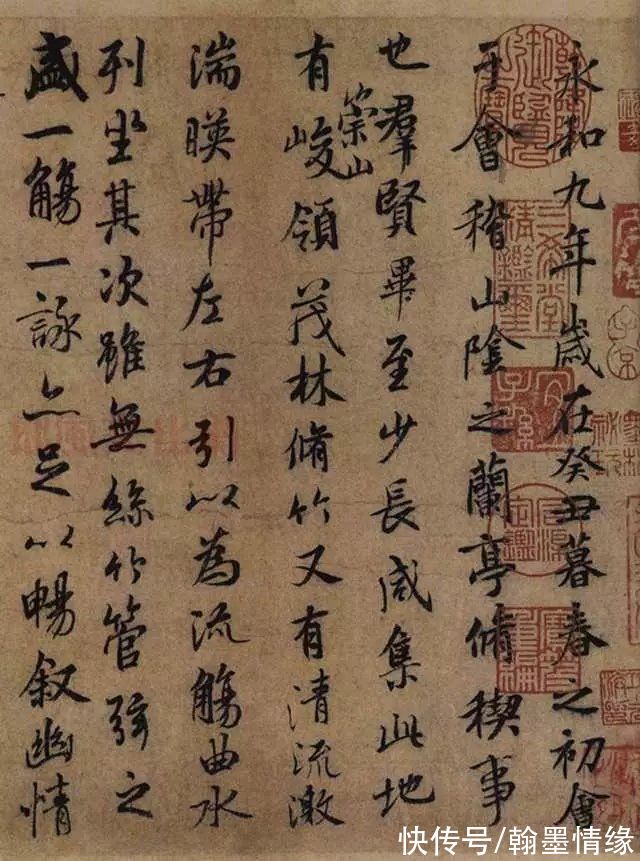 永和九年歲在癸丑暮春之初會
于會稽山陰之蘭亭脩稧事
也羣賢畢至少長咸集此地
有崇山峻領茂林脩竹又有清流激
湍暎帶左右引以為流觴曲水
列坐其次雖無絲竹管弦之
盛一觴一詠亦足以暢叙幽情
三希堂精鑑璽
宜子孫
快传号/翰墨情缘